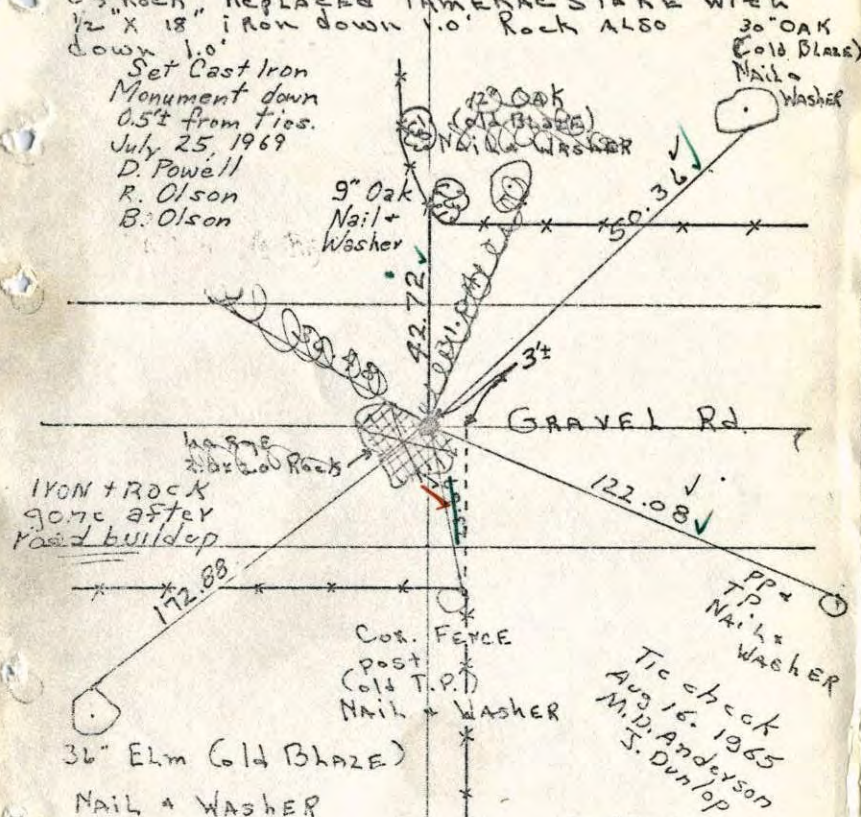 Rock" Replaced
Stake with
1/2" x 18" iron down 1.0' Rock ALSO
down 1.0'
Set Cast Iron
Monument down
0.5'± from ties.
July 25, 1969
D. Powell
R. Olson
B. Olson
30" OAK
(old BLAZE)
NAIL &
WASHER
12" OAK
(old BLAZE)
NAIL & WASHER
9" Oak
Nail +
Washer
50.36
42.72
3'±
GRAVEL Rd.
Large
Rock
IRON + ROCK
gone after
road buildup
122.08
172.88
PP &
TP
NAIL &
WASHER
Cor. FENCE
post
(old T.P.)
NAIL & WASHER
Tie check
Aug 16. 1965
M.D. Anderson
J. Dunlop
36" Elm (old BLAZE)
NAIL & WASHER